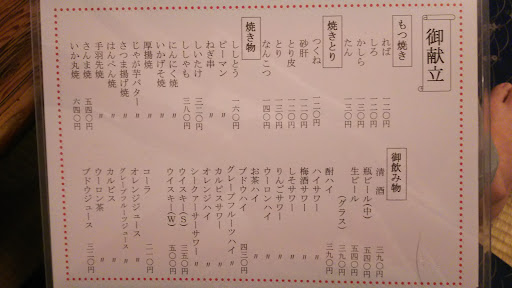 御献立
もつ焼き
れば 一二〇円
しろ 一二〇円
かしら 一二〇円
たん 一三〇円
焼きとり
つくね 一二〇円
砂肝 一二〇円
とり皮 一二〇円
とり 一三〇円
なんこつ
焼き物
ししとう 一六〇円
ピーマン 〃
ねぎ串 〃
しいたけ 二二〇円
ししゃも 三八〇円
にんにく焼 〃
いかげそ焼 〃
厚揚焼 〃
じゃが芋バター 〃
さつま揚げ焼 〃
はんぺん焼 〃
手羽先焼 〃
さんま焼 五四〇円
いか丸焼 六四〇円
御飲み物
清酒 三九〇円
瓶ビール(中) 五四〇円
生ビール 五四〇円
(グラス) 三九〇円
酎ハイ 三九〇円
ハイサワー 〃
梅酒サワー 〃
しそサワー 〃
りんごサワー 〃
ウーロンハイ 〃
お茶ハイ 〃
ブドウハイ 四三〇円
グレープフルーツハイ 〃
カルピスサワー 〃
オレンジハイ 〃
シークァーサーサワー 〃
ウイスキー(S) 三五〇円
ウイスキー(W) 五〇〇円
コーラ 二一〇円
オレンジジュース 〃
グレープフルーツジュース 〃
カルピス 〃
ウーロン茶 〃
ブドウジュース 三二〇円